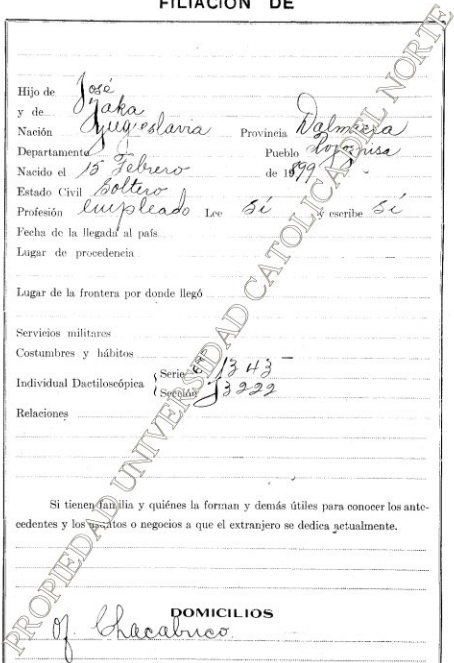 FILIACIÓN DE
Hijo de José
y de Jaka
Nación Yugieslavia Provincia Dalmacia
Departamento Pueblo
Nacido el 15 Febrero de 1899
Estado Civil Soltero
Profesión empleado Lee Sí y escribe Sí
Fecha de la llegada al país
Lugar de procedencia
Lugar de la frontera por donde llegó
Servicios militares
Costumbres y hábitos
Individual Dactiloscópica Serie 1343
Sección 3222
Relaciones
Si tienen familia y quiénes la forman y demás útiles para conocer los ante-
cedentes y los asuntos o negocios a que el extranjero se dedica actualmente.
DOMICILIOS
Of. Chacabuco
PROPIEDAD UNIVERSIDAD CATOLICA DEL NORTE